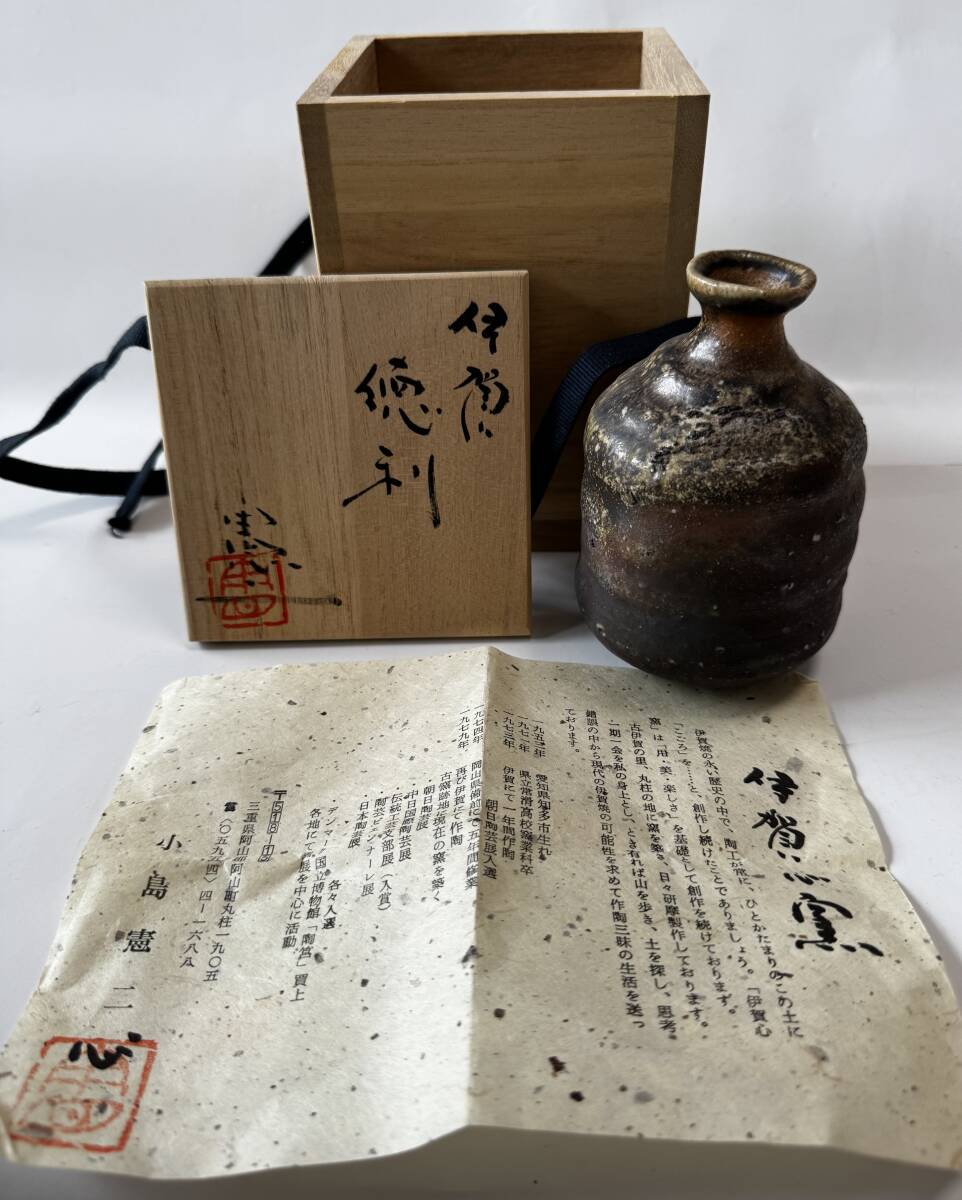 伊賀
徳利
憲二
伊賀心窯
伊賀焼の永い歴史の中で、陶工が常に、ひとかたまりのこの土に
「こころ」を……と、創作し続けたことでありましょう。「伊賀心
窯」は「用・美・楽しさ」を基礎として創作を続けております。
古伊賀の里、丸柱の地に窯を築き、日々研摩製作しております。
一期一会を私の身上とし、とき有れば山を歩き、土を探し、思考
錯誤の中から現代の伊賀焼の可能性を求めて作陶三昧の生活を送っ
ております。
一九五三年 愛知県知多市生れ
一九七一年 県立常滑高校窯業科卒
一九七三年 伊賀にて一年間作陶
朝日陶芸展入選
一九七四年 岡山県備前にて五年間修業
一九七九年 再び伊賀にて作陶
古窯跡地に現在の窯を築く
朝日陶芸展
中日国際陶芸展
伝統工芸支部展(入賞)
陶芸ビエンナーレ展
日本陶芸展
各々入選
デンマーク国立博物館「陶筥」買上
各地にて個展を中心に活動
〒518-13
三重県阿山郡阿山町丸柱一九〇五
☎(〇五九五四)四-一六八八
小島憲二
心